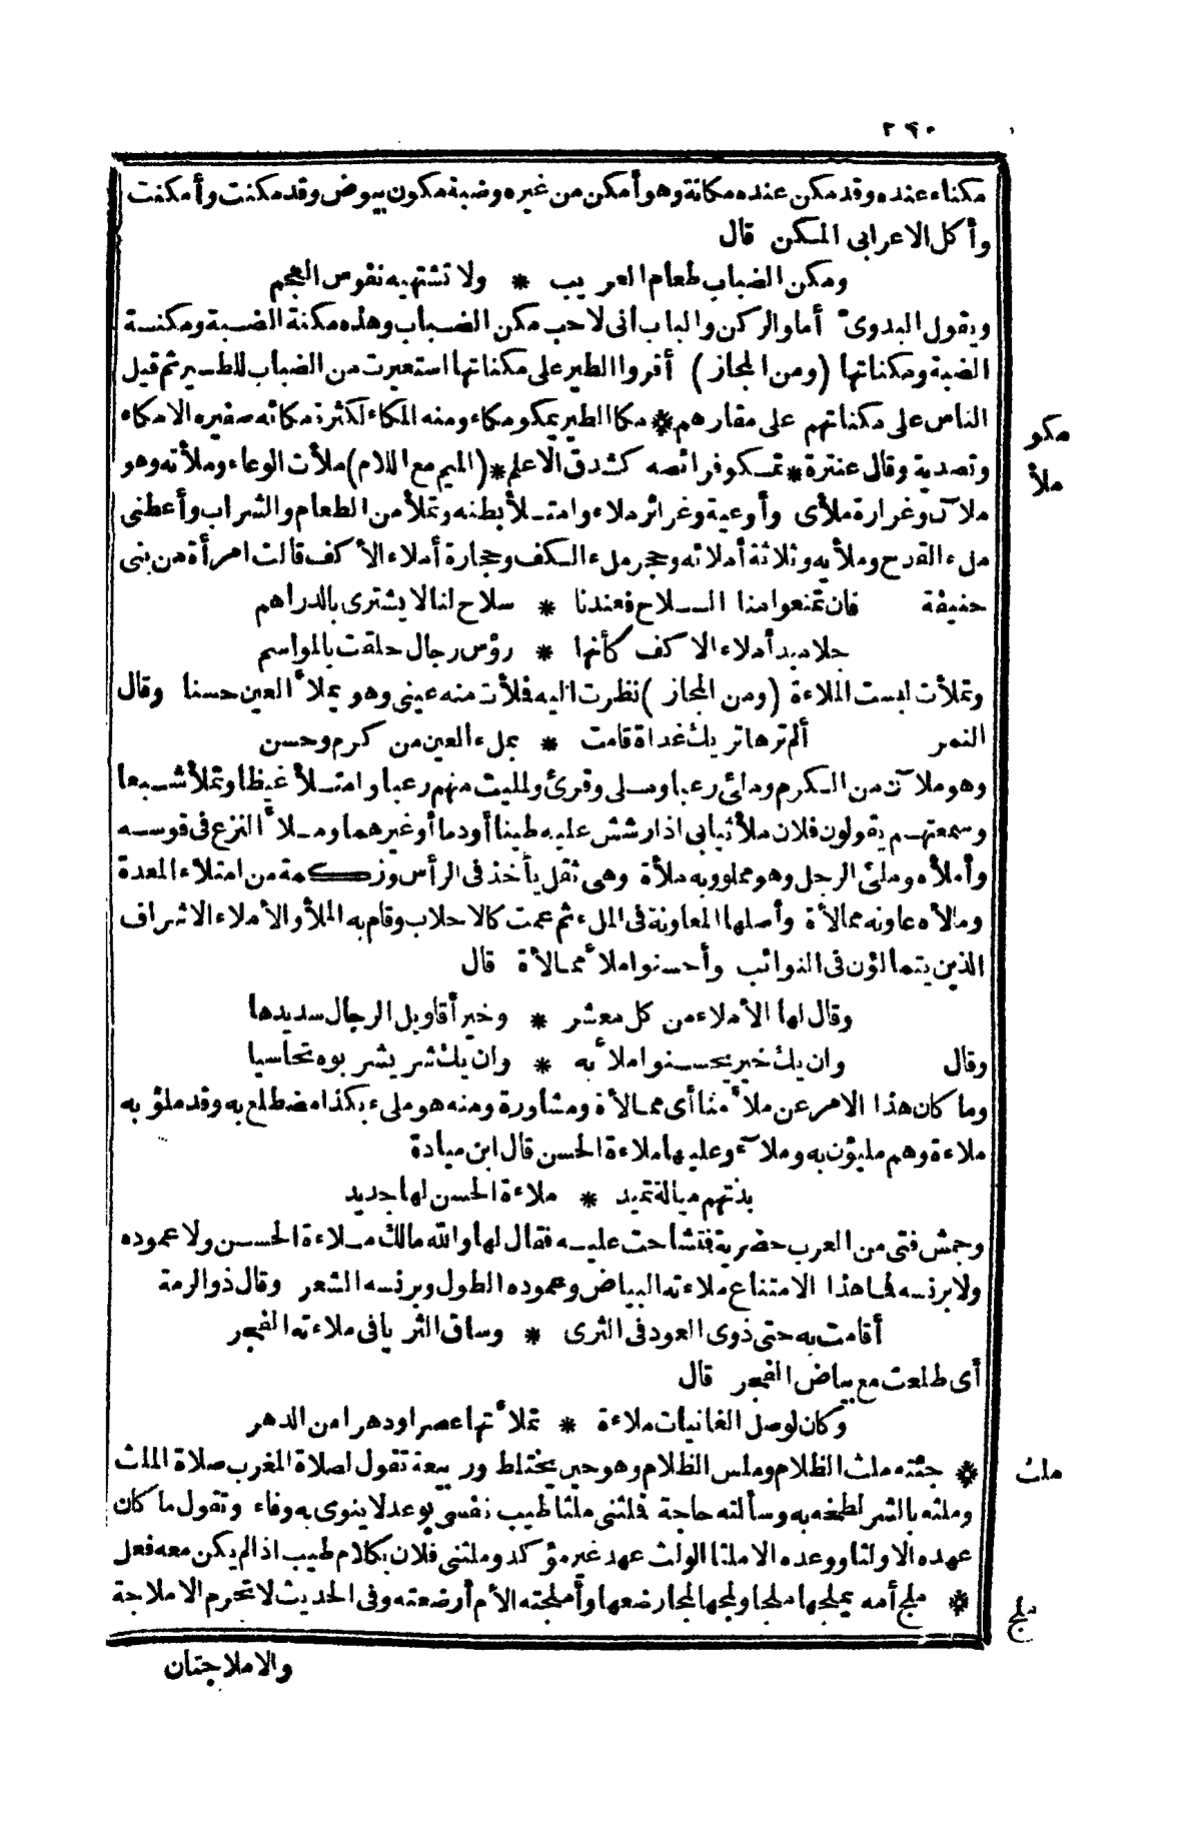 ٢٩٠
مكناء عنده وقد مكن عنده مكانة وهو أمكن من غيره وضبة مكون بيوض وقد مكنت وأمكنت
وأكل الاعرابى المكن قال
ومكن الضباب طعام العريب * ولا تشتهيه نفوس العجم
ويقول البدوىّ أما والركن والباب انى لاحب مكن الضباب وهذه مكنة الضبة ومكنسة
الضبة ومكناتها (ومن المجاز) أقروا الطير على مكناتها استعيرت من الضباب للطير ثم قيل
الناس على مكناتهم على مقارهم * مكا الطير يمكو مكاء ومنه المكاء لكثرة مكائه صفيره الامكاء
مكو
وتصدية وقال عنترة * تمكو فرائصه كشدق الاعلم * (الميم مع اللام) ملأت الوعاء وملأته وهو
ملأ
ملآن وغرارة ملأى وأوعية وغرائر ملاء وامتلأ بطنه وتملأ من الطعام والشراب وأعطنى
ملء القدح وملأيه وثلاثة أملائه وحجر ملء الكف وحجارة أملاء الأكف قالت امرأة من بنى
حنيفة فان تمنعوا منا السلاح فعندنا * سلاح لنا لا يشترى بالدراهم
جلاميد أملاء الاكف كأنها * رؤس رجال حلقت بالمواسم
وتملأت لبست الملاءة (ومن المجاز) نظرت اليه فملأت منه عينى وهو يملأ العين حسنا وقال
النمر ألم ترها تريك غداة قامت * بملء العين من كرم وحسن
وهو ملآن من الكرم وملئ رعبا وملى وقرئ ولمليت منهم رعبا وامتلأ غيظا وتملأ شبعا
وسمعتهم يقولون فلان ملأ ثيابى اذا رشش عليه طينا أو دما أو غيرهما وملأ النزع فى قوسه
وأملأه وملئ الرجل وهو مملوو به ملأة وهى ثقل يأخذ فى الرأس وزكمة من امتلاء المعدة
ومالأه عاونه ممالأة وأصلها المعاونة فى الملء ثم عمت كالاحلاب وقام به الملأ والأملاء الاشراف
الذين يتمالؤن فى النوائب وأحسنوا ملأ ممالأة قال
وقال لها الأملاء من كل معشر * وخير أقاويل الرجال سديدها
وقال وان يك خير يحسنوا ملأ به * وان يك شر يشربوه تحاسيا
وما كان هذا الامر عن ملأ منا أى ممالأة ومشاورة ومنه هو ملىء بكذا مضطلع به وقد ملؤ به
ملاءة وهم مليؤن به وملآء وعليها ملاءة الحسن قال ابن ميادة
بذتهم ميالة تميد * ملاءة الحسن لها جديد
وجمش فتى من العرب حضرية فتشاحت عليه فقال لها والله مالك ملاءة الحسن ولا عموده
ولا برنسه فما هذا الامتناع ملاءته البياض وعموده الطول وبرنسه الشعر وقال ذو الرمة
أقامت به حتى ذوى العود فى الثرى * وساق الثريا فى ملاءته الفجر
أى طلعت مع بياض الفجر قال
وكان لوصل الغانيات ملاءة * تملأتها عصرا ودهرا من الدهر
* جئته ملث الظلام وملس الظلام وهو حين يختلط وربيعة تقول لصلاة المغرب صلاة الملث
ملث
وملثه بالشر لطخه به وسألته حاجة فملثنى ملثا طيب نفسى بوعد لا ينوى به وفاء وتقول ما كان
عهده الا ولثا ووعده الا ملثا الولث عهد غير مؤكد وملثنى فلان بكلام طيب اذا لم يكن معه فعل
* ملج أمه يملجها ملجا ولمجها لمجا رضعها وأملجته الأم أرضعته وفى الحديث لا تحرم الاملاجة
ملج
والاملاجتان